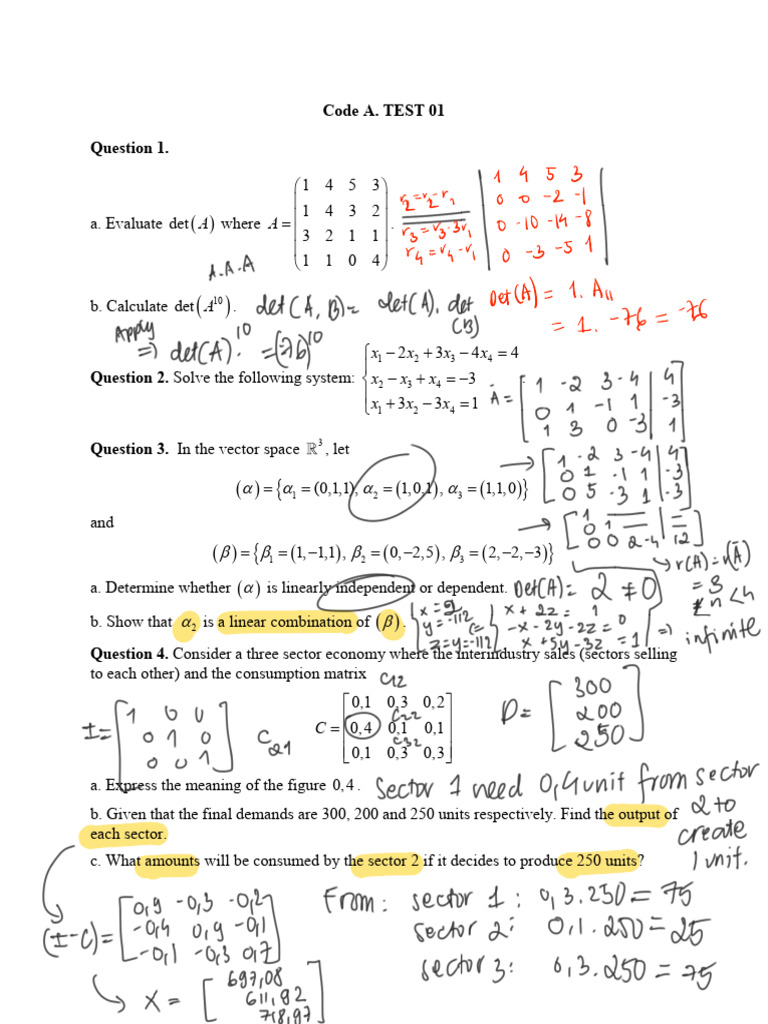 Code A. TEST 01
Question 1.
a. Evaluate det(A) where A = (1 4 5 3
1 4 3 2
3 2 1 1
1 1 0 4).
r₂=r₂-r₁
r₃=r₃-3r₁
r₄=r₄-r₁
1 4 5 3
0 0 -2 -1
0 -10 -14 -8
0 -3 -5 1
A.A.A
b. Calculate det(A¹⁰). det(A, B) = det(A). det (B)
Det(A) = 1. A₁₁
= 1. -76 = -76
Apply
=> det(A)¹⁰ = (-76)¹⁰
Question 2. Solve the following system: {x₁ − 2x₂ + 3x₃ − 4x₄ = 4
x₂ − x₃ + x₄ = −3
x₁ + 3x₂ − 3x₄ = 1
A = [1 -2 3 -4 | 4
0 1 -1 1 | -3
1 3 0 -3 | 1]
Question 3. In the vector space ℝ³, let
→ [1 -2 3 -4 | 4
0 1 -1 1 | -3
0 5 -3 1 | -3]
(α) = {α₁ = (0,1,1), α₂ = (1,0,1), α₃ = (1,1,0)}
and
→ [1
0 1
0 0 2 -4 | 12]
(β) = {β₁ = (1,−1,1), β₂ = (0,−2,5), β₃ = (2,−2,−3)}
→ r(A) = r(Ā)
= 3
n < 4
=> infinite
a. Determine whether (α) is linearly independent or dependent. Det(A) = 2 ≠ 0
b. Show that α₂ is a linear combination of (β).
x = 2
y = -1/2
z = y = -1/2
x + 2z = 1
-x - 2y - 2z = 0
x + 5y - 3z = 1
Question 4. Consider a three sector economy where the interindustry sales (sectors selling
to each other) and the consumption matrix
C12
I = [1 0 0
0 1 0
0 0 1]
C21
C = [0,1 0,3 0,2
C22
0,4 0,1 0,1
C32
0,1 0,3 0,3]
D = [300
200
250]
a. Express the meaning of the figure 0,4. Sector 1 need 0,4 unit from sector
2 to
create
1 unit.
b. Given that the final demands are 300, 200 and 250 units respectively. Find the output of
each sector.
c. What amounts will be consumed by the sector 2 if it decides to produce 250 units?
(I-C) = [0,9 -0,3 -0,2
-0,4 0,9 -0,1
-0,1 -0,3 0,7]
X = [697,08
611,92
718,97]
From: sector 1: 0,3.250 = 75
sector 2: 0,1.250 = 25
sector 3: 0,3.250 = 75